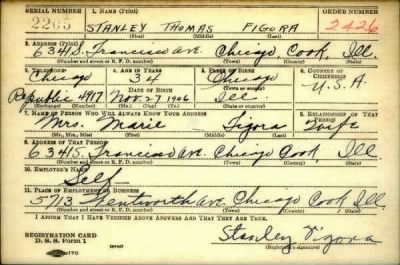 SERIAL NUMBER 1. NAME (Print) ORDER NUMBER
2205 STANLEY THOMAS FIGORA 2426
(First) (Middle) (Last)
2. ADDRESS (Print)
6341 S. Francisco Ave. Chicago, Cook, Ill.
(Number and street or R. F. D. number) (Town) (County) (State)
3. TELEPHONE 4. AGE IN YEARS 5. PLACE OF BIRTH 6. COUNTRY OF CITIZENSHIP
Chicago 34 Chicago
DATE OF BIRTH (Town or county)
Republic 4917 Nov. 27 1906 Ill. U.S.A.
(Exchange) (Number) (Mo.) (Day) (Yr.) (State or country)
7. NAME OF PERSON WHO WILL ALWAYS KNOW YOUR ADDRESS 8. RELATIONSHIP OF THAT PERSON
Mrs. Marie Figora Wife
(Mr., Mrs., Miss) (First) (Middle) (Last)
9. ADDRESS OF THAT PERSON
6341 S. Francisco Ave. Chicago Cook, Ill.
(Number and street or R. F. D. number) (Town) (County) (State)
10. EMPLOYER'S NAME
Self
11. PLACE OF EMPLOYMENT OR BUSINESS
5713 Wentworth Ave Chicago Cook Ill.
(Number and street or R. F. D. number) (Town) (County) (State)
I AFFIRM THAT I HAVE VERIFIED ABOVE ANSWERS AND THAT THEY ARE TRUE.
REGISTRATION CARD Stanley Figora
D. S. S. Form 1 (Registrant's signature)